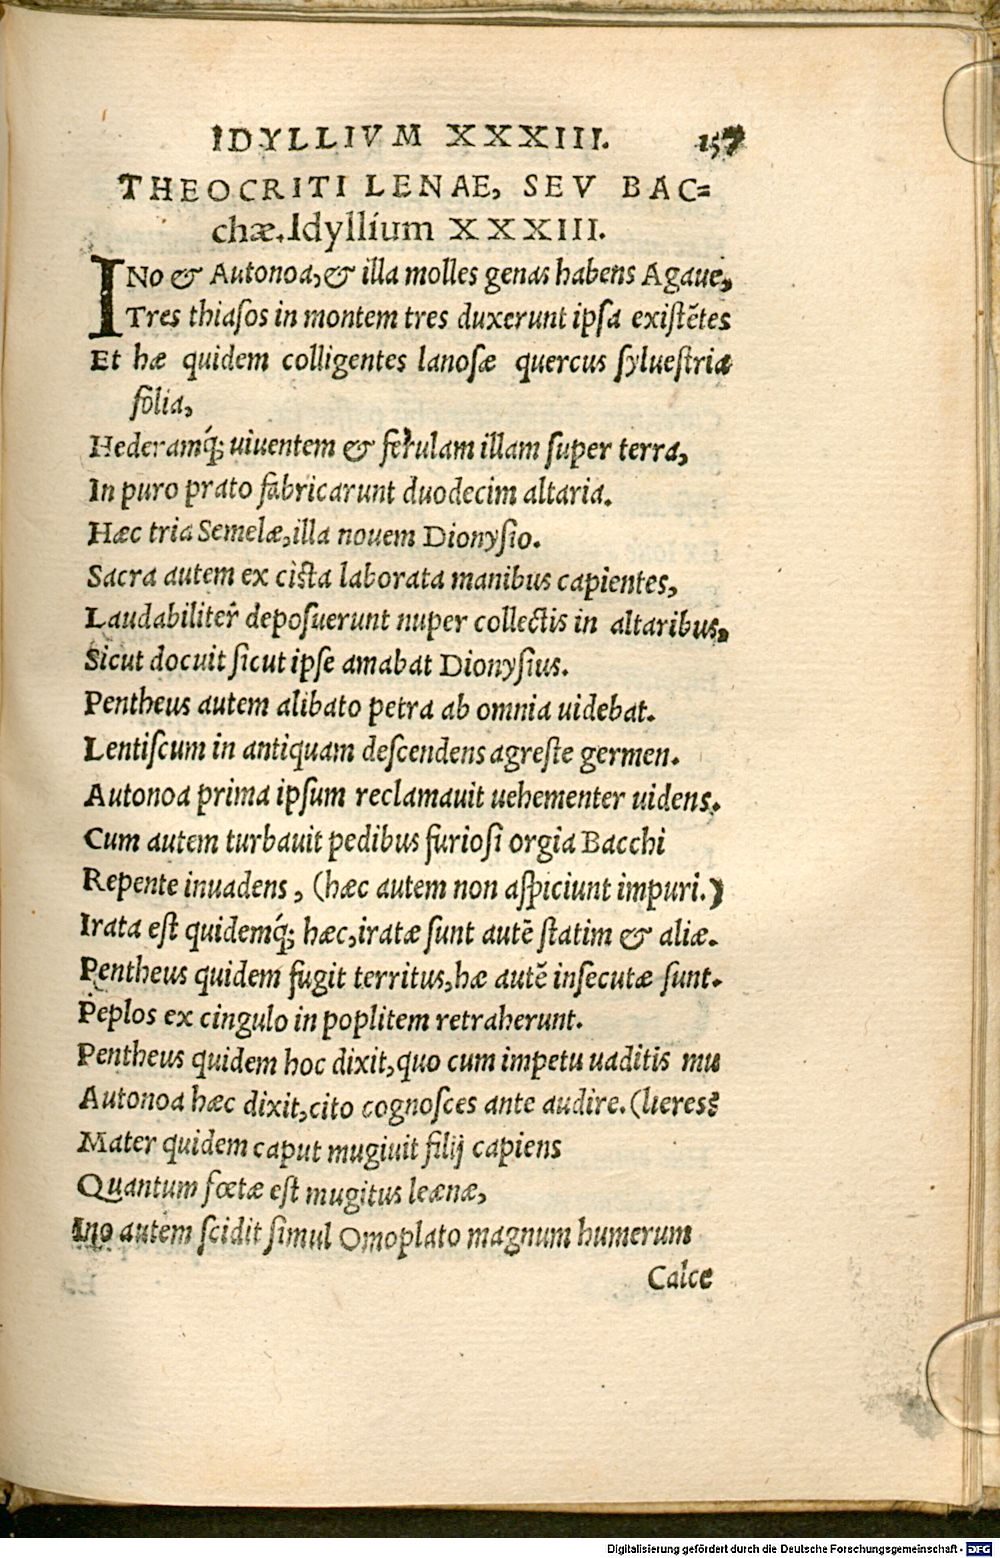 IDYLLIVM XXXIII. 157
THEOCRITI LENAE, SEV BAC=
chæ. Idyllium XXXIII.
INo & Autonoa, & illa molles genas habens Agaue,
Tres thiasos in montem tres duxerunt ipsa existẽtes
Et hæ quidem colligentes lanosæ quercus syluestria
folia,
Hederamq́; uiuentem & ferulam illam super terra,
In puro prato fabricarunt duodecim altaria.
Hæc tria Semelæ, illa nouem Dionysio.
Sacra autem ex cista laborata manibus capientes,
Laudabiliter deposuerunt nuper collectis in altaribus,
Sicut docuit sicut ipse amabat Dionysius.
Pentheus autem alibato petra ab omnia uidebat.
Lentiscum in antiquam descendens agreste germen.
Autonoa prima ipsum reclamauit uehementer uidens.
Cum autem turbauit pedibus furiosi orgia Bacchi
Repente inuadens, (hæc autem non aspiciunt impuri.)
Irata est quidemq́; hæc, iratæ sunt autẽ statim & aliæ.
Pentheus quidem fugit territus, hæ autẽ insecutæ sunt.
Peplos ex cingulo in poplitem retraherunt.
Pentheus quidem hoc dixit, quo cum impetu uaditis mu
Autonoa hæc dixit, cito cognosces ante audire. (lieres?
Mater quidem caput mugiuit filij capiens
Quantum fœtæ est mugitus leænæ,
Ino autem scidit simul Omoplato magnum humerum
Calce
Digitalisierung gefördert durch die Deutsche Forschungsgemeinschaft - DFG